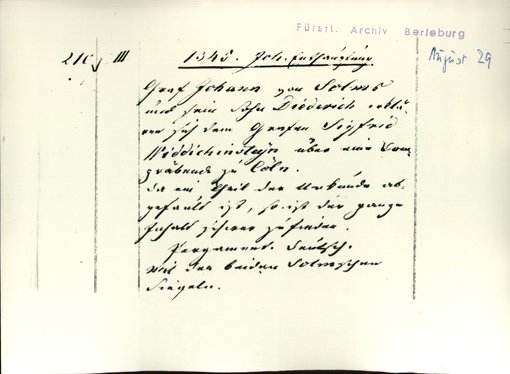 Fürstl. Archiv Berleburg
August 29
21c III 1345. Joh. Enthauptung
Graf Johann von Solms
und sein Sohn Diederich erklä-
ren sich dem Grafen Sigfrid
Widdichinsteyn über eine
gräbende zu Cöln.
Da ein Theil der Urkunde ab-
gefault ist, so ist der ganze
Inhalt schwer zu finden.
Pergament. deutsch.
mit den beiden Solmsschen
Siegeln.